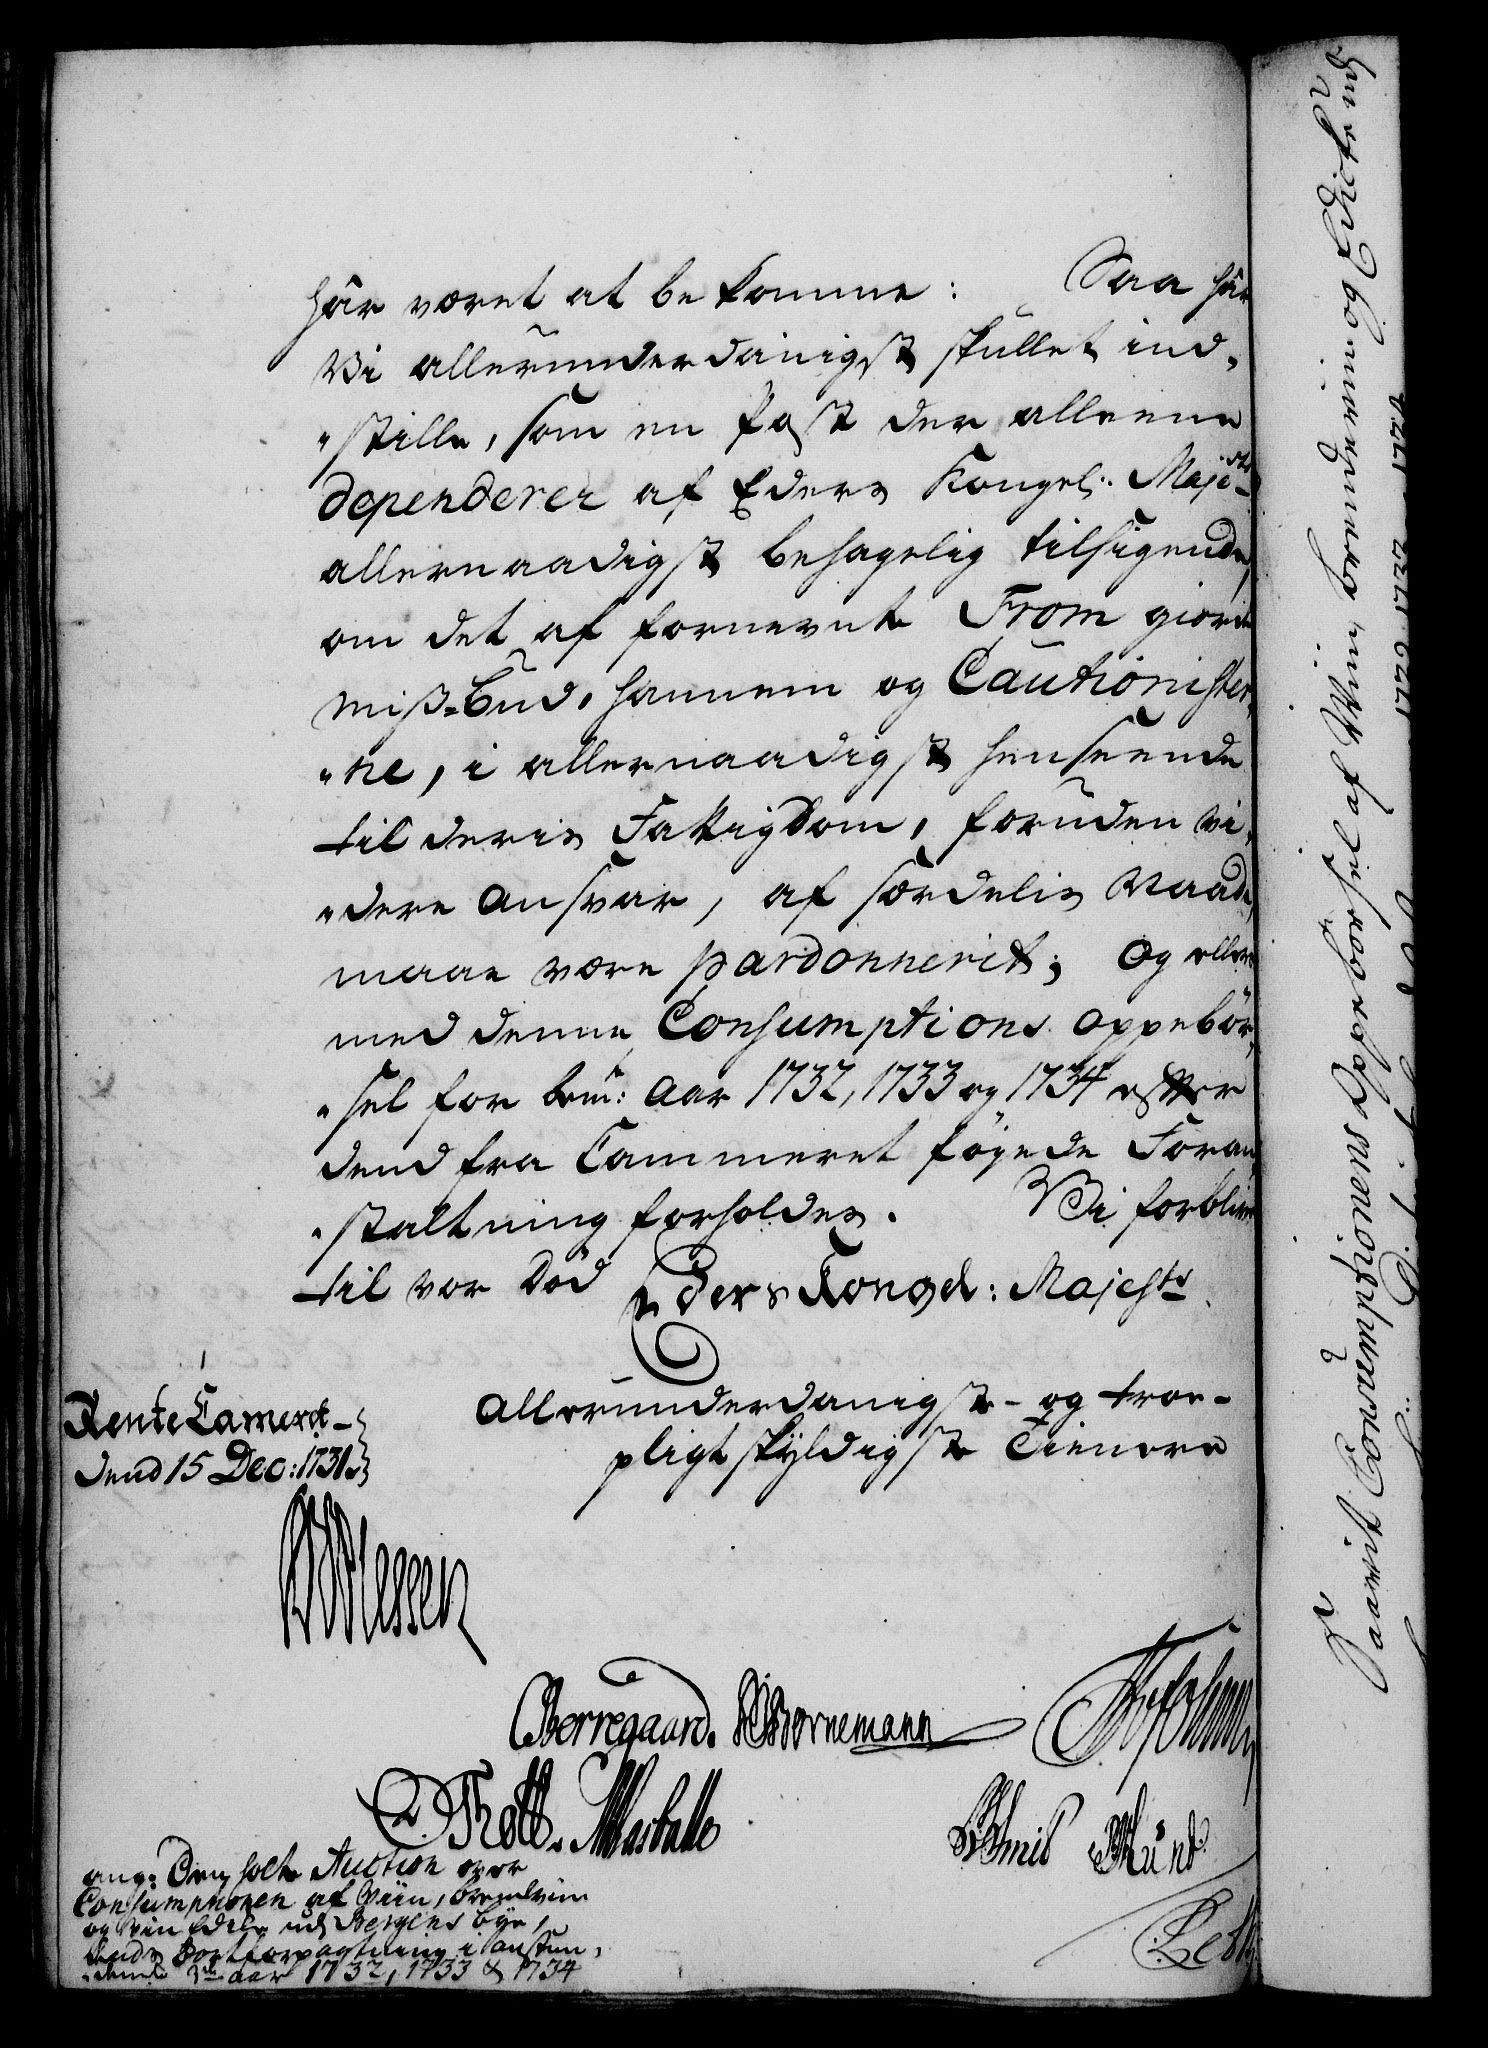 hâr været at bekomme: Saa hâr
Vi allerunderdânigst skullet ind-
"stille, som en Post der alleene
dependerer af Eders Kongel: Majests
allernaadigst behagelig tilsigende,
om det af fornevnte From giorde
miss-bud, hannem og Cautionister-
"ne, i allernaadigst henseende
til deris Fattigdom, foruden vi-
"dere Ansvar, af særdelis Naade,
maae være pardonnerit; Og ellers
med denne Consumptions Oppebör-
"sel for bem: Aar 1732, 1733 og 1734 efter
dend fra Cammeret föyede Foran-
"staltning forholdes. Vi forblive
til vor Död Eders Kongel: Majests
Allerunderdanigst- og troe-
pligtskyldigste Tienere
Rente Cameret
dend 15 Dec: 1731.
Plessen
Berregaard. Bornemann
Thott.
Schmid Münt
ang: Den holte Auction over
Consumptionen af Viin, brendeviin
og Viin Edike udj Bergens bye,
dends Bortforpagtning i anstun-
"dende 3de aar 1732, 1733 & 1734
Consumptionens Oppebörsel af Viin, brendeviin og Edike udj